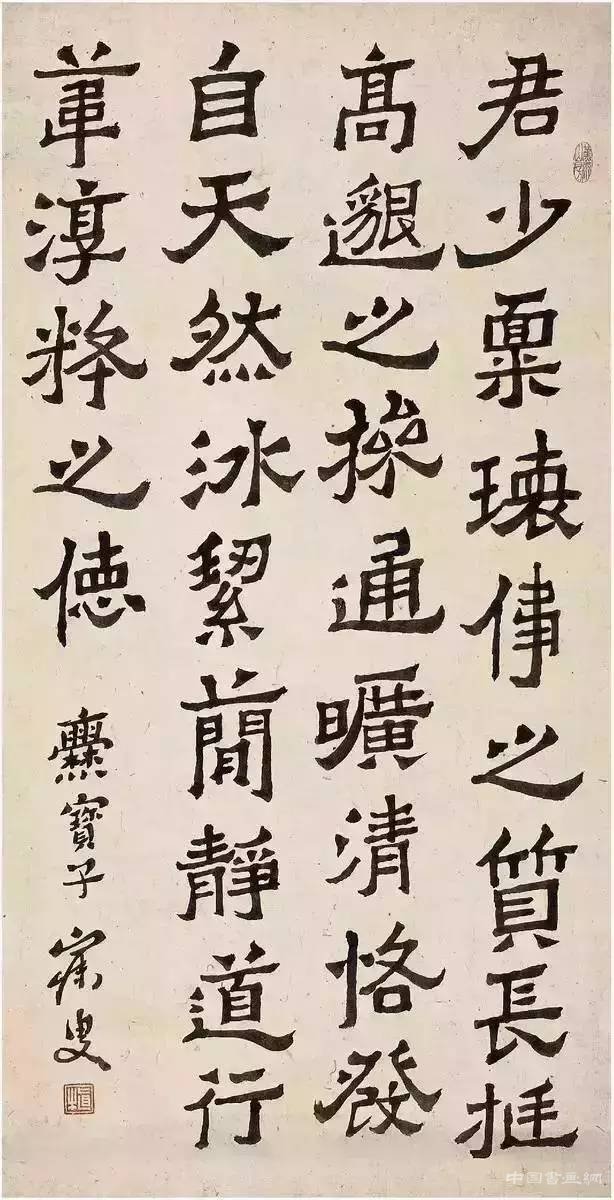 君少稟瓌偉之質長挺
高邈之操通曠清恪發
自天然冰絜簡靜道行
葦淳粹之德
爨寶子 寐叟
中国書画網